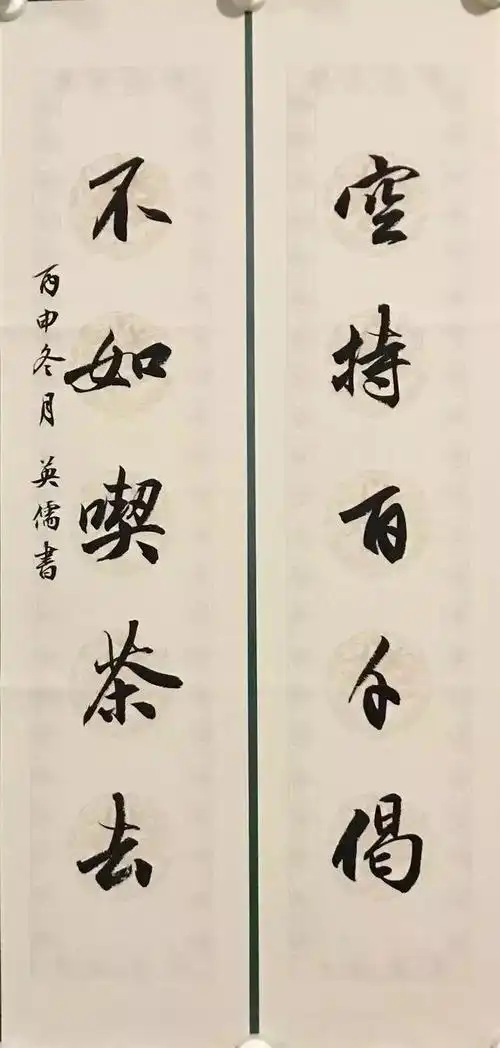 空持百千偈
不如喫茶去
丙申冬月 英儒書